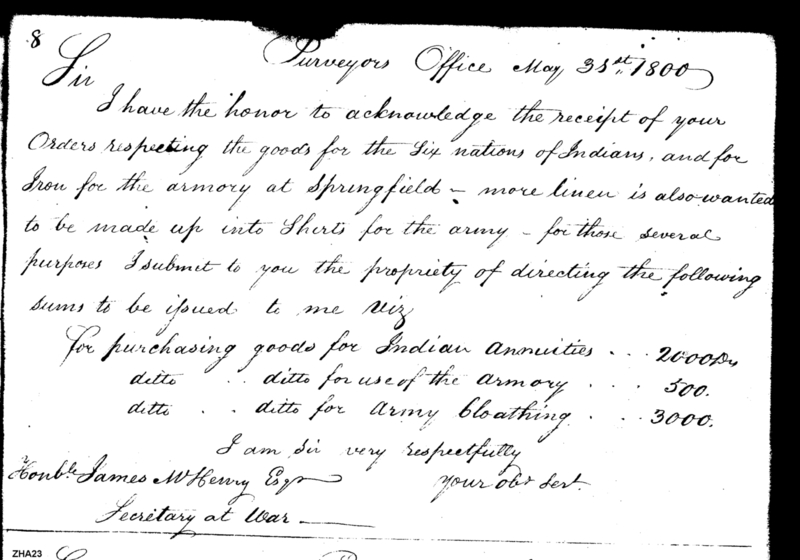 8
Purveyors Office May 31st 1800
Sir
I have the honor to acknowledge the receipt of your
Orders respecting the goods for the Six nations of Indians, and for
Iron for the armory at Springfield – more linen is also wanted
to be made up into Shirts for the army – for those several
purposes I submit to you the propriety of directing the following
sums to be issued to me Viz
for purchasing goods for Indian Annuities ... 2000 Ds
ditto .. ditto for use of the Armory .... 500.
ditto .. ditto for Army Cloathing ... 3000.
I am Sir very respectfully
Honble James McHenry Esqr your obt Servt.
Secretary at War
ZHA23